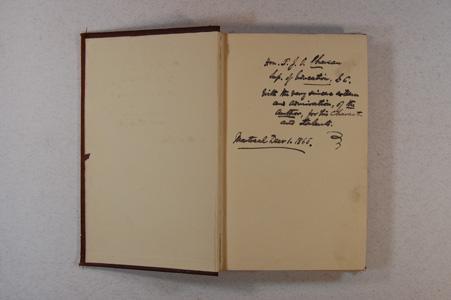 Hon. P. J. O.
Sup. of Education, L. C.
With the very sincere esteem
and admiration, of the
Author, for his Charact.
and talents.
Montreal Decr 1. 1865.